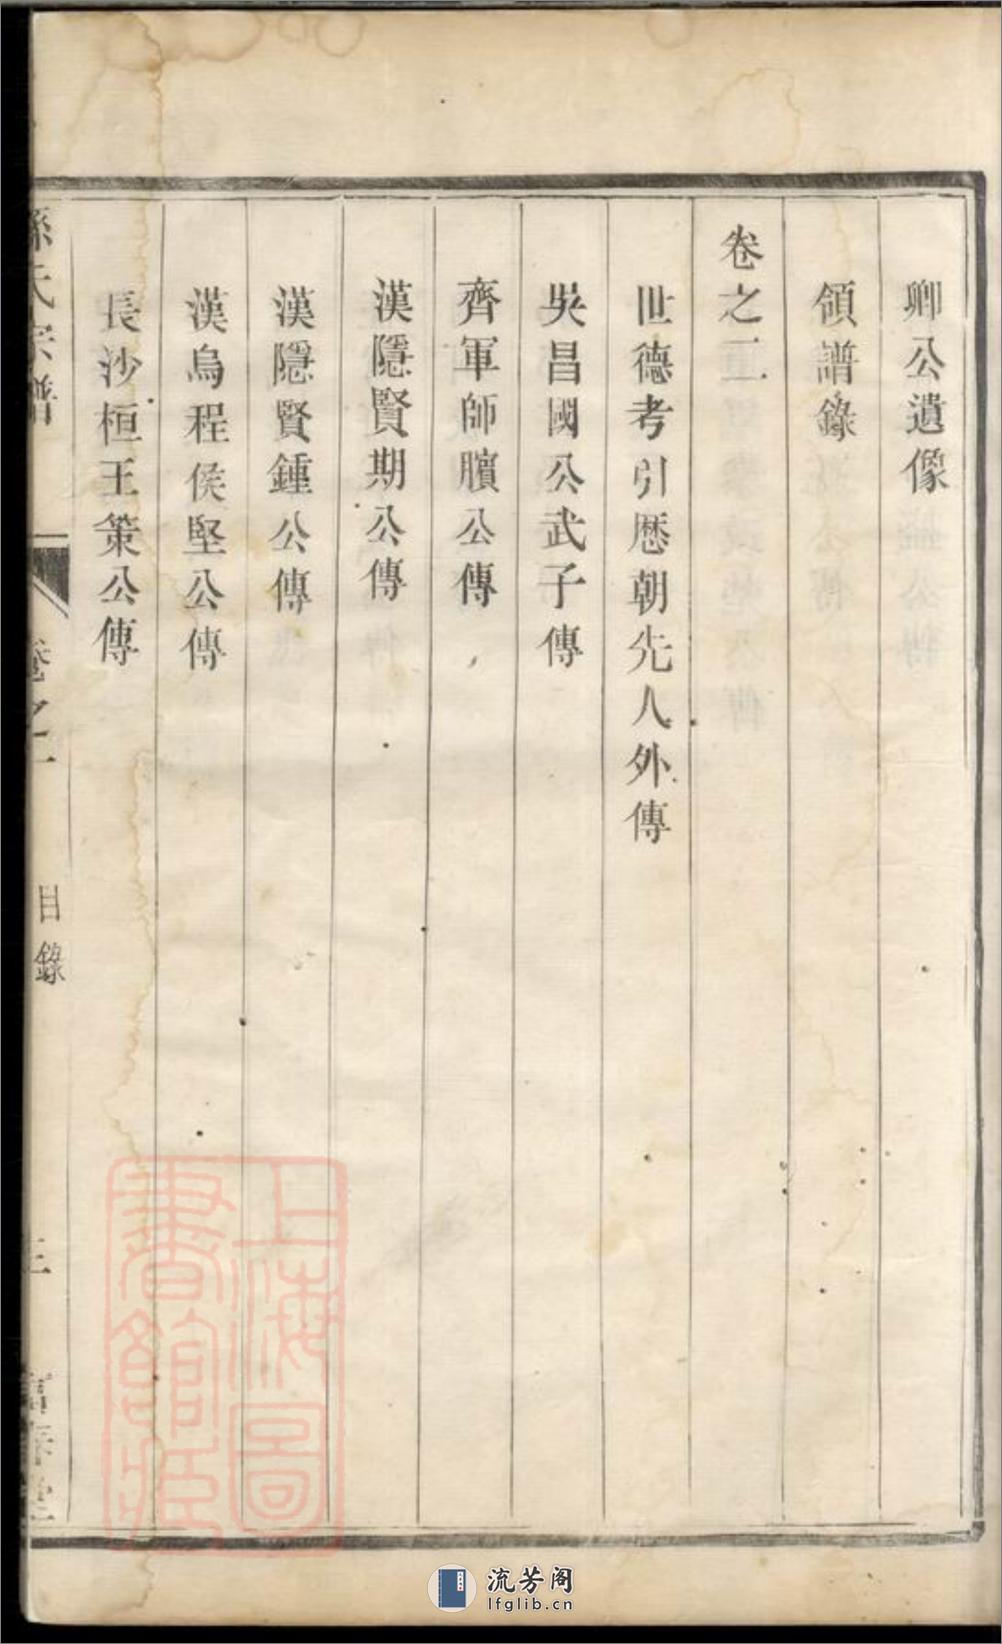 卿公遺像
領譜錄
卷之二
世德考引歷朝先人外傳
吳昌國公武子傳
齊軍師臏公傳
漢隱賢期公傳
漢隱賢鍾公傳
漢烏程侯堅公傳
長沙桓王策公傳
孫氏宗譜
卷之一
目錄
三
上海圖書館藏
流芳阁
lfglib.cn